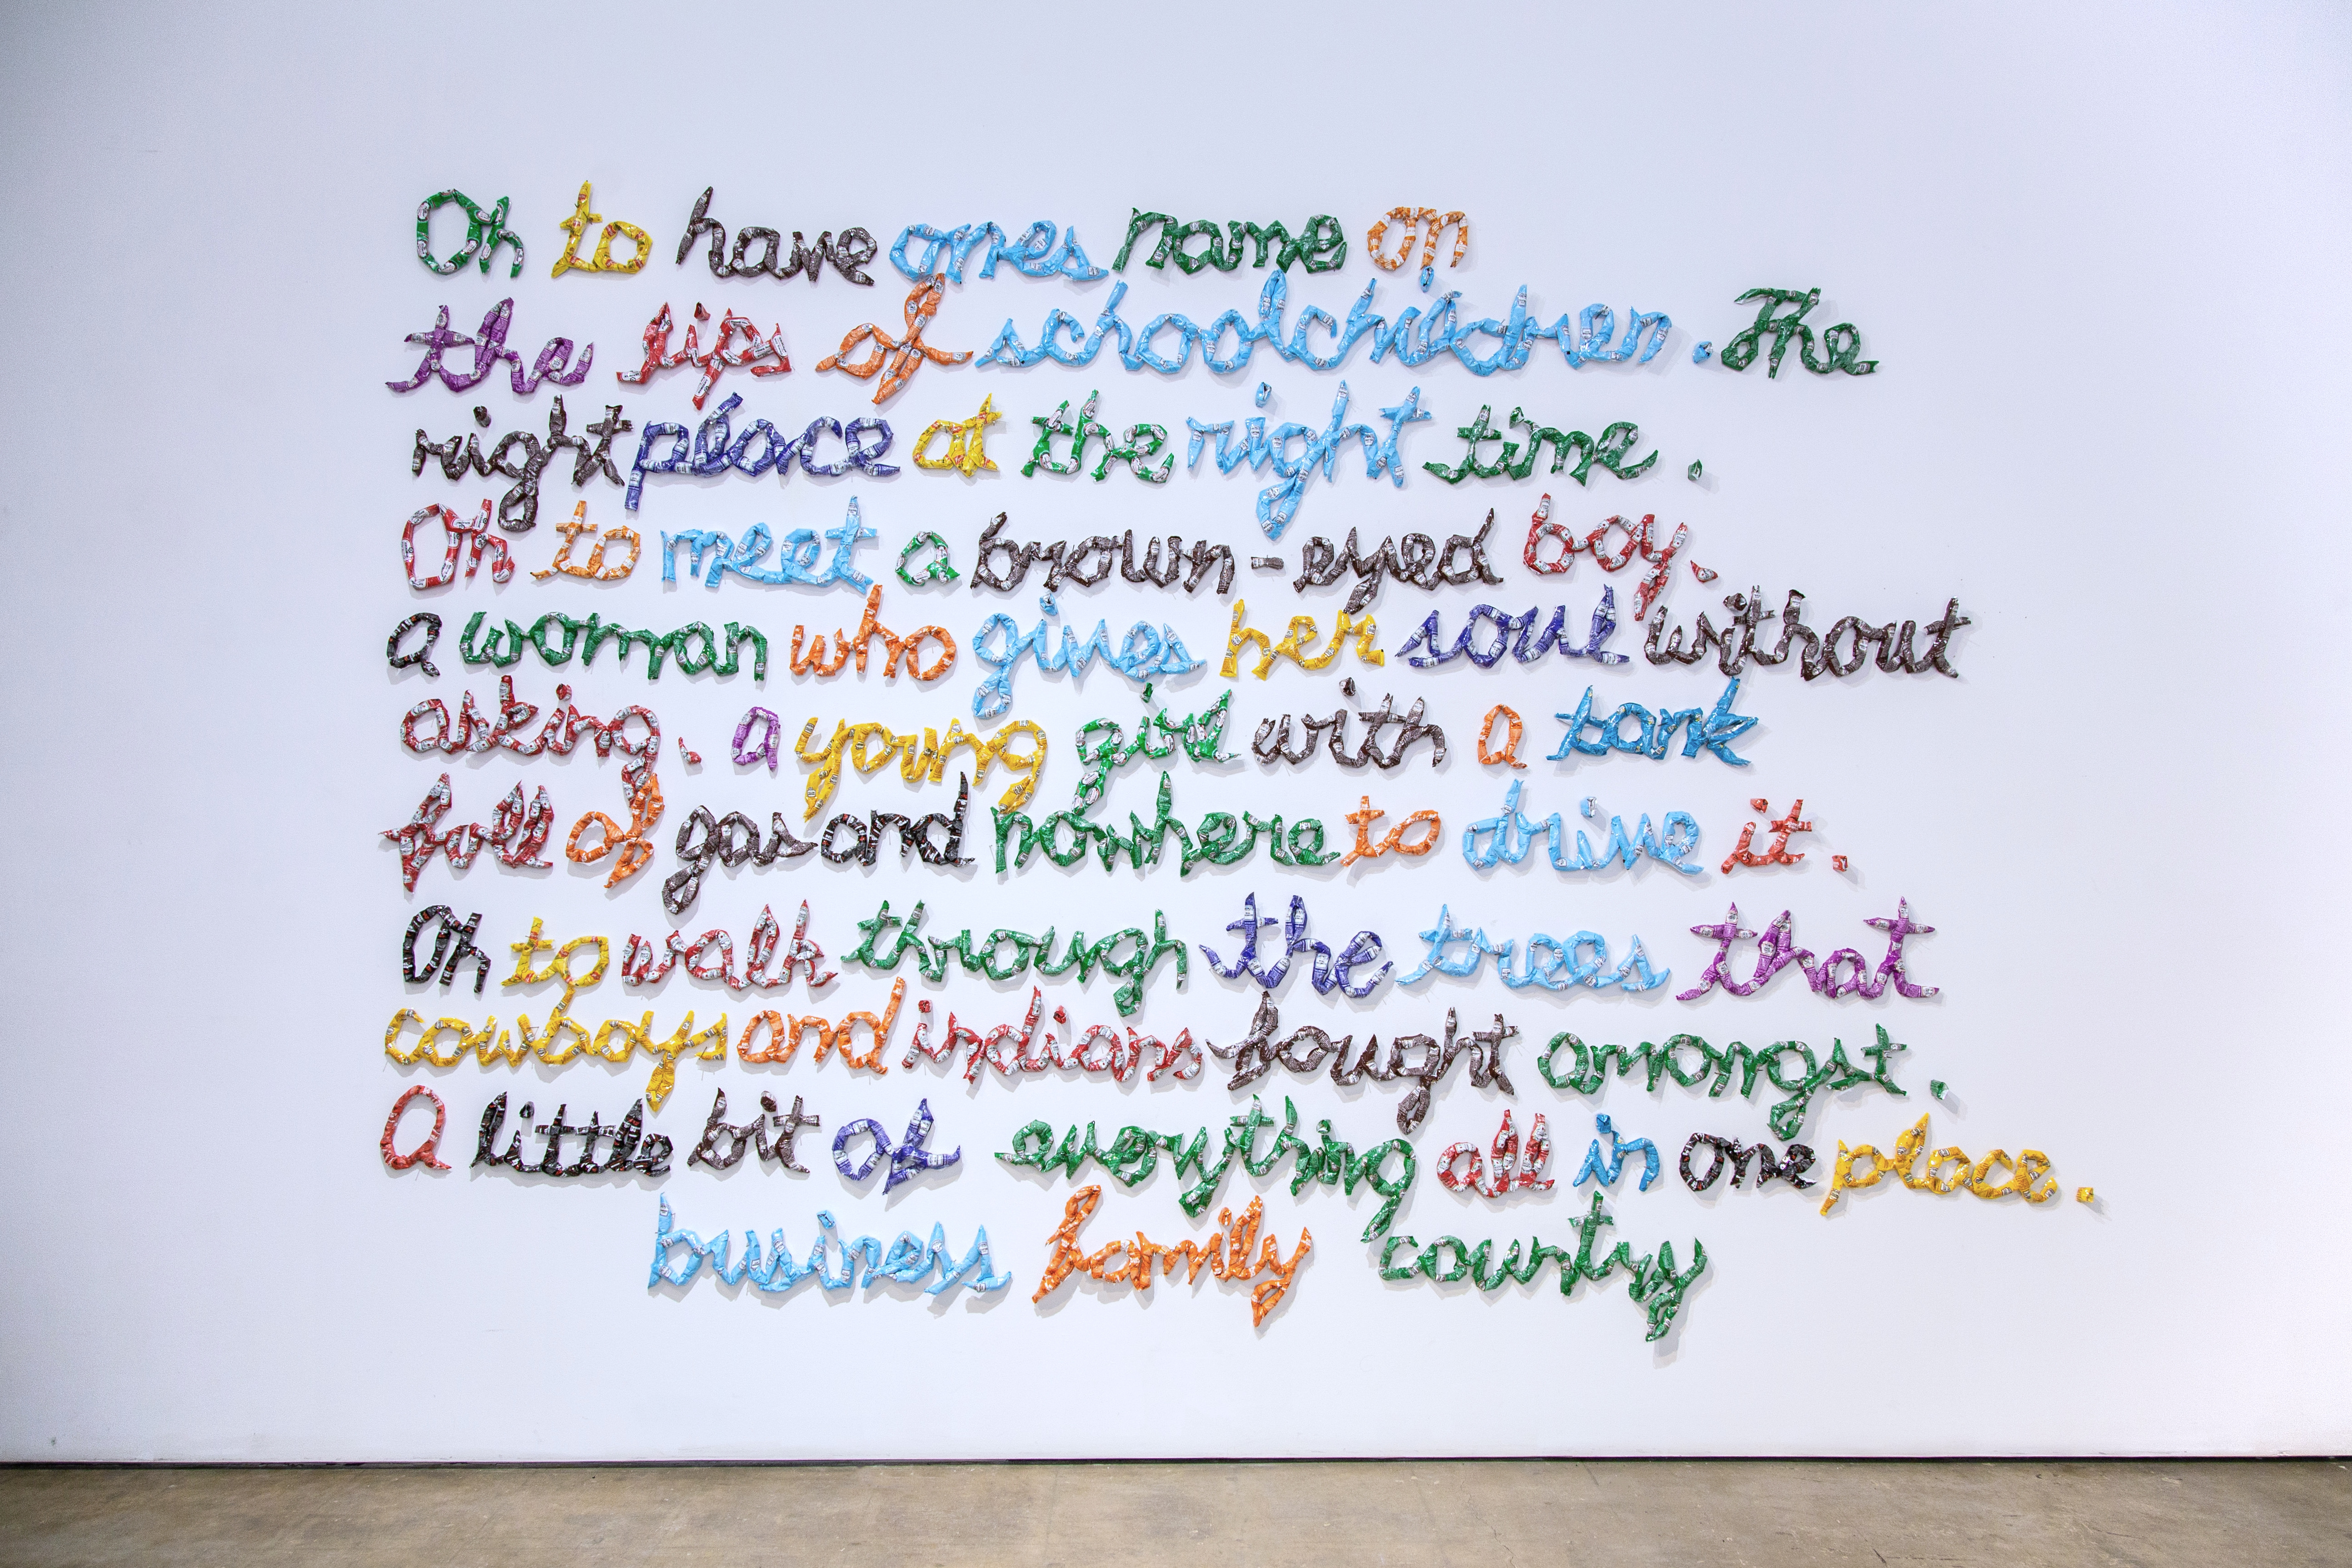 Oh to have ones name on
the lips of schoolchildren. The
right place at the right time.
Oh to meet a brown-eyed boy.
a woman who gives her soul without
asking. a young girl with a tank
full of gas and nowhere to drive it.
Oh to walk through the trees that
cowboys and indians fought amongst.
A little bit of everything all in one place.
business family country